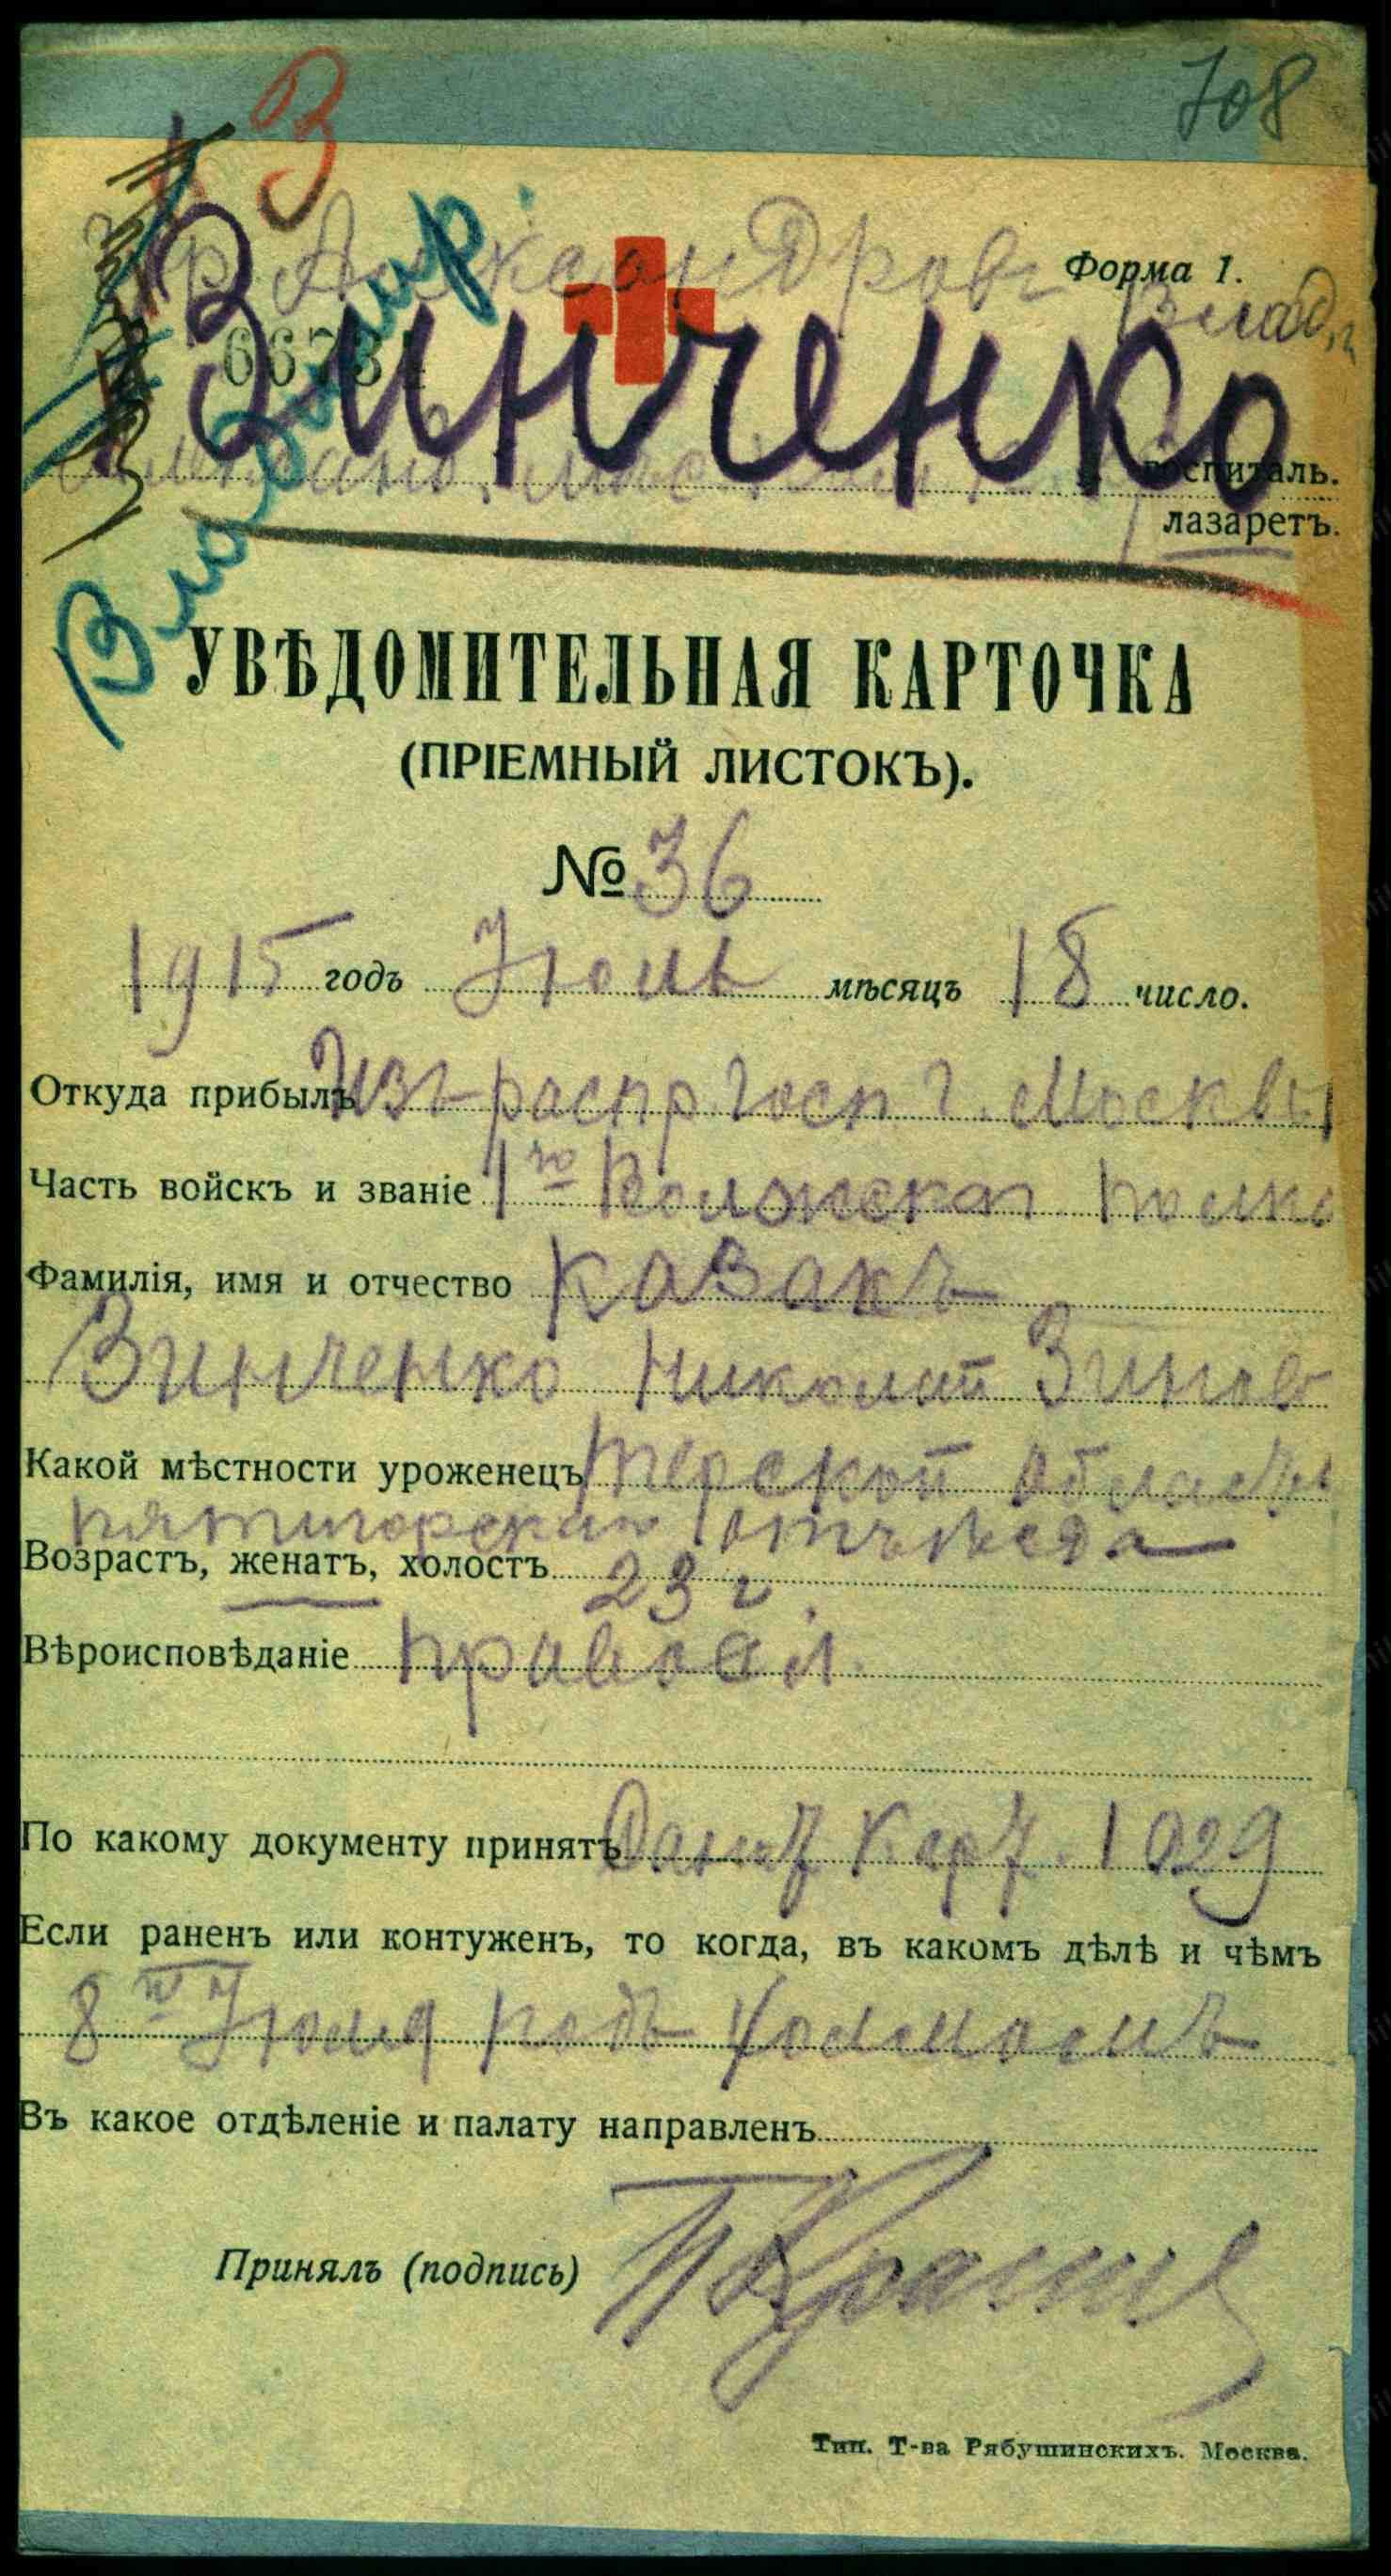 708
З
гр. Александров
Форма 1.
Влад. г.
66734
Зинченко
Владимир.
госпиталь.
лазаретъ.
УВѢДОМИТЕЛЬНАЯ КАРТОЧКА
(ПРІЕМНЫЙ ЛИСТОКЪ).
№ 36
1915 годъ Іюнь мѣсяцъ 18 число.
Откуда прибылъ Изъ распр. госп. г. Москвы
Часть войскъ и званіе 1го Волжскаг. полка
Фамилія, имя и отчество казакъ
Зинченко Николай Зинов
Какой мѣстности уроженецъ Терской области
пятигорскаго
Возрастъ, женатъ, холостъ 23 г.
Вѣроисповѣданіе правосл.
По какому документу принятъ Санит карт. 1029
Если раненъ или контуженъ, то когда, въ какомъ дѣлѣ и чѣмъ
8го Іюня подъ
Въ какое отдѣленіе и палату направленъ
Принялъ (подпись)
Тип. Т-ва Рябушинскихъ. Москва.